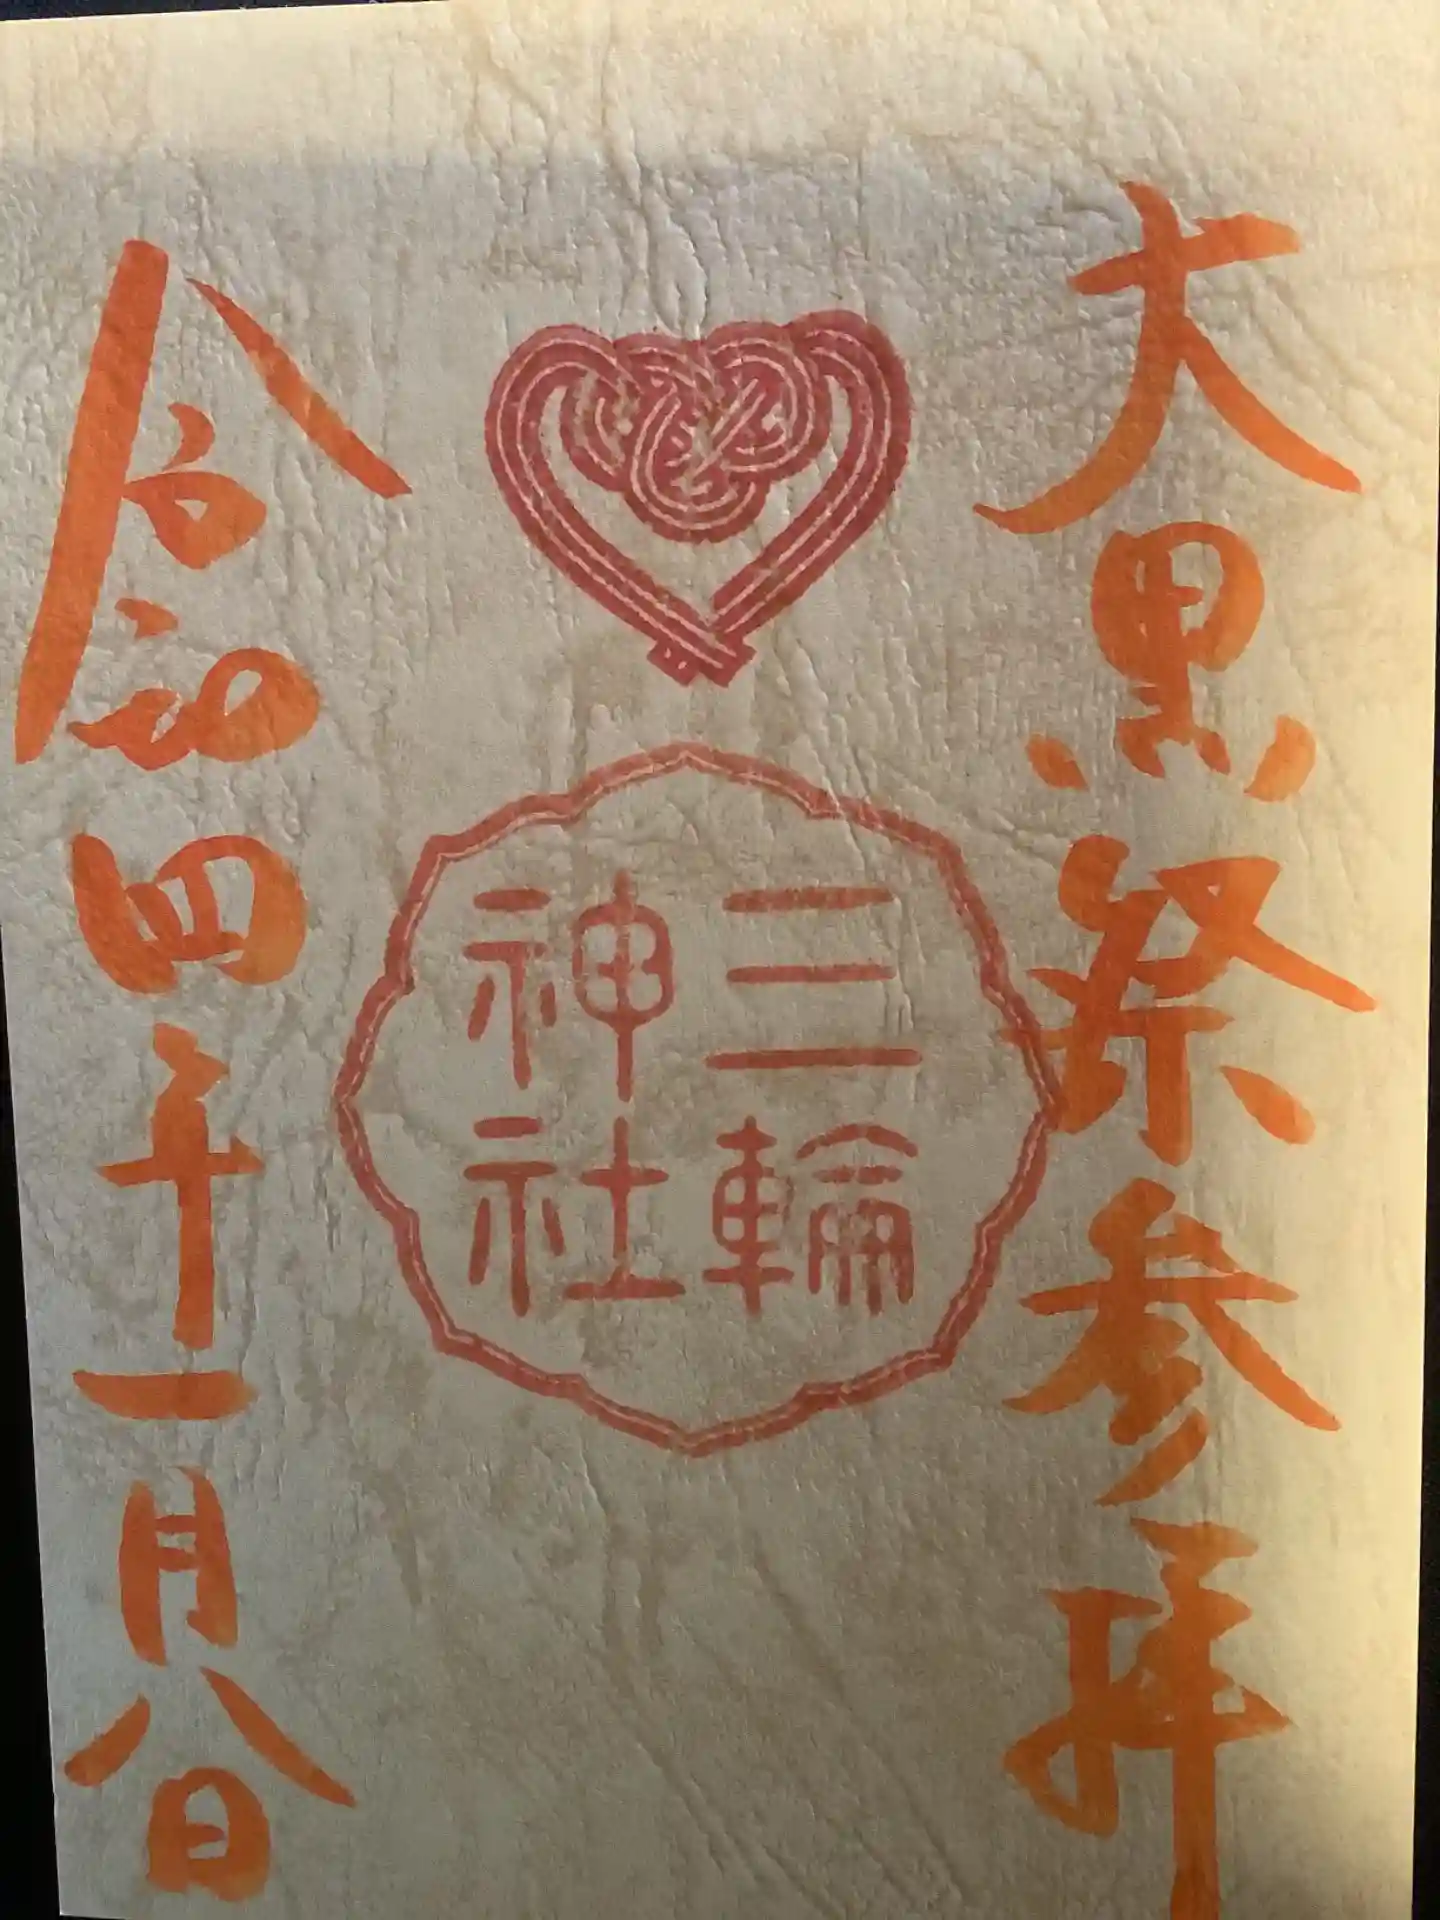 大黒祭参拝
三輪
神社
令和四年十一月八日